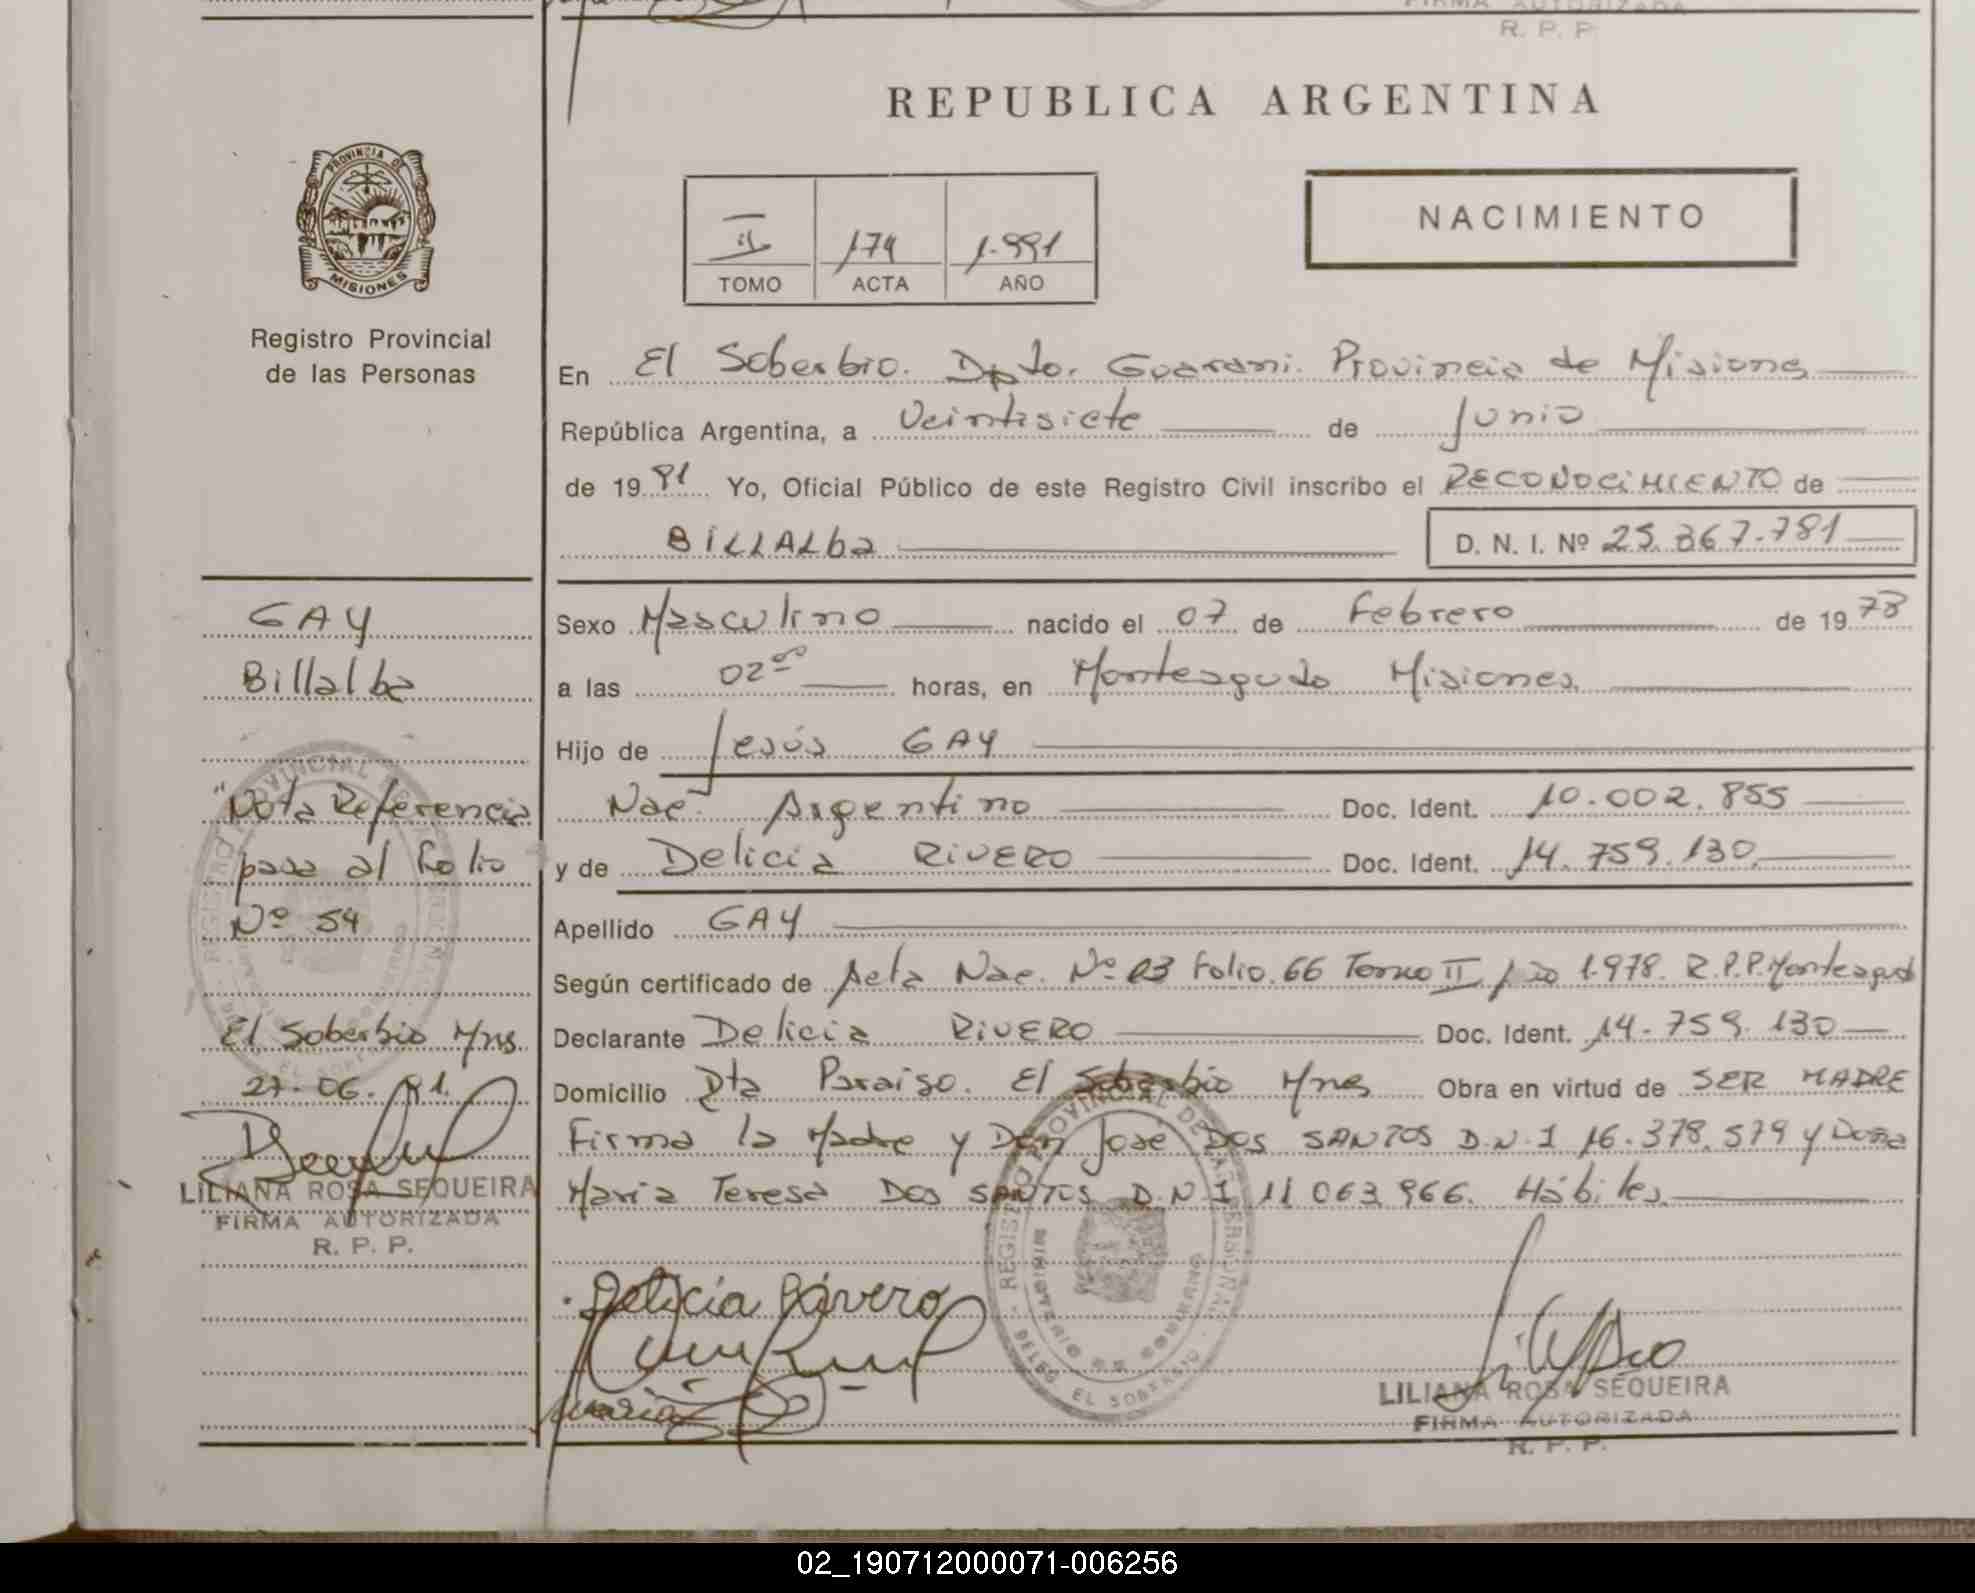 FIRMA AUTORIZADA
R. P. P
REPUBLICA ARGENTINA
PROVINCIA DE
MISIONES
Registro Provincial
de las Personas
II 174 1.991
TOMO ACTA AÑO
NACIMIENTO
En El Soberbio. Dpto. Guarani. Provincia de Misiones
República Argentina, a Veintisiete de Junio
de 19 91 Yo, Oficial Público de este Registro Civil inscribo el RECONOCIMIENTO de
BILLALba D. N. I. Nº 25.367.781
GAY
Billalba
Sexo Masculino nacido el 07 de Febrero de 19 78
a las 02 horas, en Monteagudo Misiones
Hijo de Jesús GAY
Nac. Argentino Doc. Ident. 10.002.855
y de Delicia RIVERO Doc. Ident. 14.759.130
"Nota Referencia
pasa al Folio
Nº 54
El Soberbio Mns.
27-06. 91.
LILIANA ROSA SEQUEIRA
FIRMA AUTORIZADA
R. P. P.
Apellido GAY
Según certificado de Acta Nac. Nº 03 Folio. 66 Tomo II Año 1.978. R.P.P. Monteagudo
Declarante Delicia RIVERO Doc. Ident. 14.759.130
Domicilio Pta Paraiso. El Soberbio Mnes Obra en virtud de SER MADRE
Firma la Madre y Don Jose DOS SANTOS D.N.I 16.378.579 y Doña
Maria Teresa DOS SANTOS D.N.I 11 063 966. Hábiles.
Delicia Rivero
Maria
LILIANA ROSA SEQUEIRA
FIRMA AUTORIZADA
R. P. P.
02_190712000071-006256